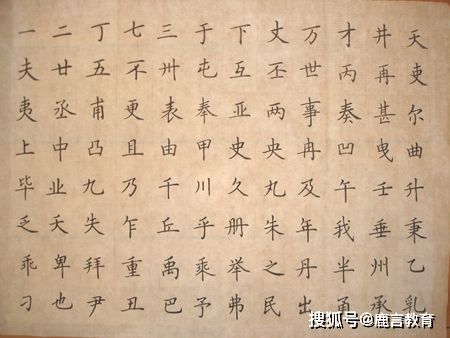 一二丁七三于下丈万才井天
夫廿五不卅屯互丕世丙再吏
夷丞甫更表奉亚两事奏甚尔
上中凸且由甲史央冉凹曳曲
毕业九乃千川久丸及午壬升
乏夭失乍丘乎册朱年我垂秉
乖卑拜重禹乘举之丹半州乙
刁也尹丑巴予弗民出甬承乳
搜狐号@鹿言教育